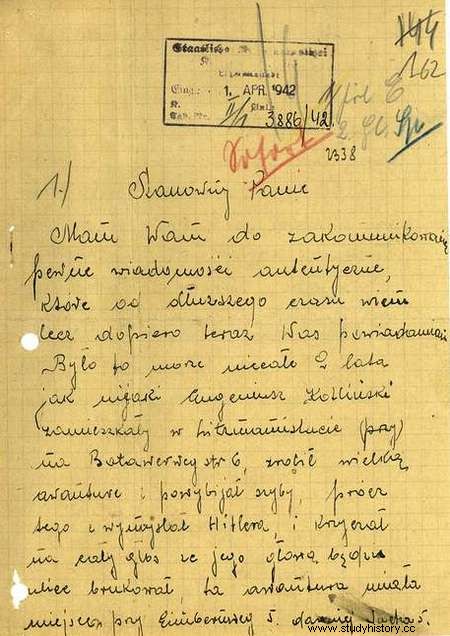 144
162
1. APR. 1942
3886/42.
Sofort
2338
1.) Szanowny Panie
Mam Wam do zakommunikowania
pewne wiadomości autentyczne,
które od dłuższego czasu wiem
lecz dopiero teraz Was powiadamiam
Było to może niecałe 2 lata
jak niejaki Eugeniusz
zamieszkały w Litzmannstadt (przy)
na str 6, zrobił wielką
awanturę i powybijał szyby, prócz
tego wymyślał Hitlera, i krzyczał
na cały głos że jego głową będzie
ulice brukował, ta awantura miała
miejsce przy 5. dawniej 5.
www.studyhistory.cc